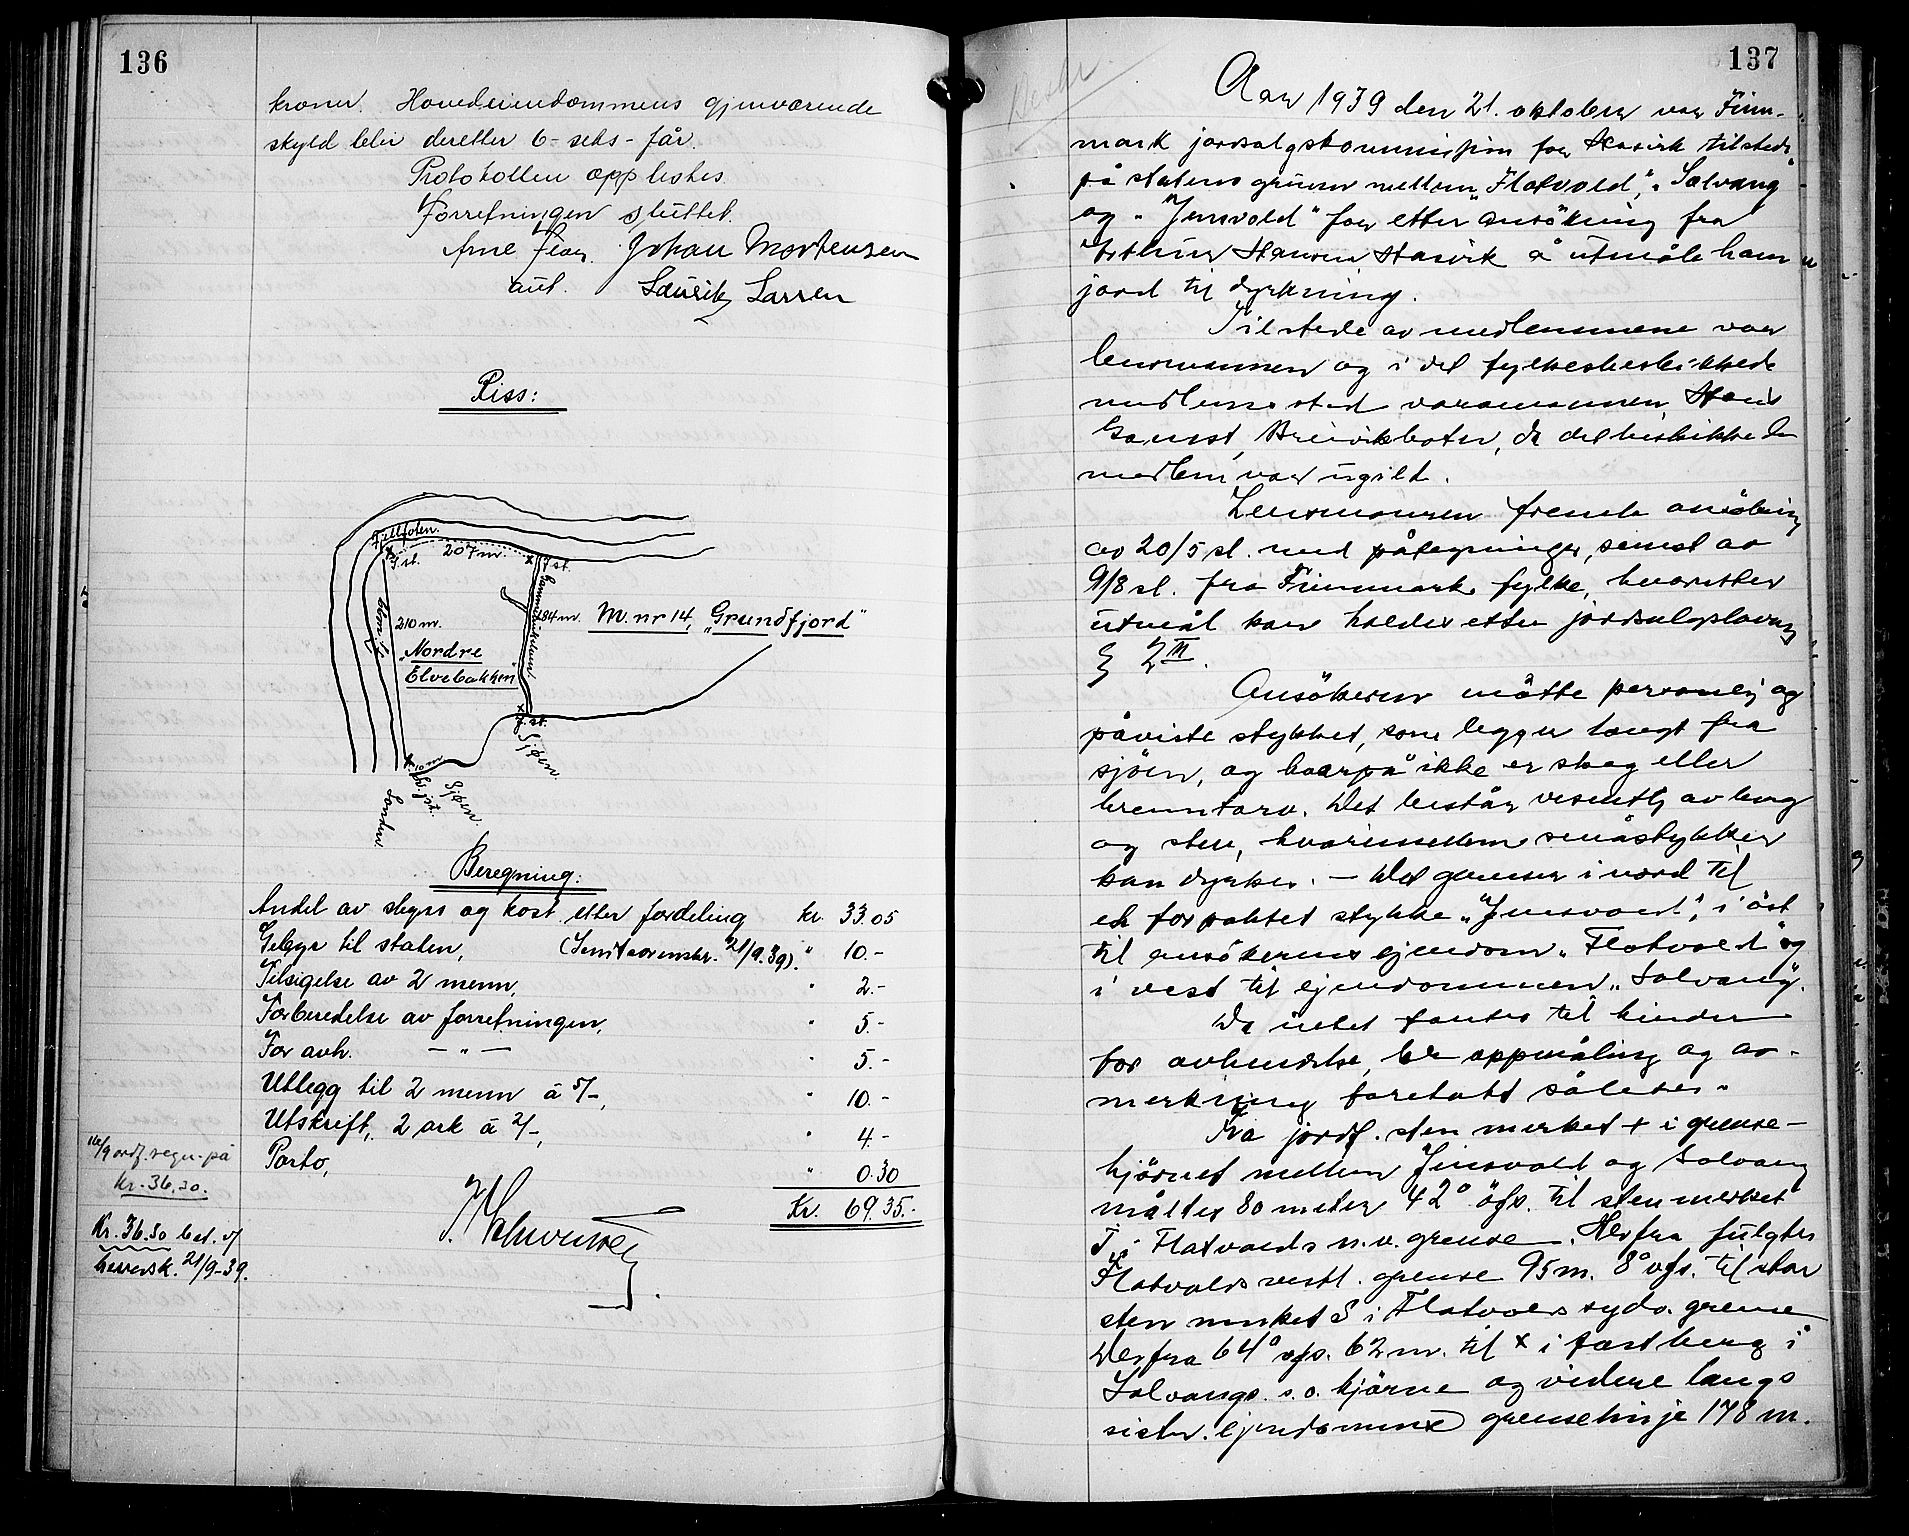 136
kroner. Hovedeiendommens gjenværende
skyld blir deretter 6 - seks - får.
Protokollen opplestes.
Forretningen sluttet.
Arne Johan Mortensen
aut. Lauritz Larsen
Riss:
Fjellfoten.
J. st. 207 m. x J. st.
210 m. 184 m. M. nr 14, "Grundfjord"
"Nordre
Elvebakken"
x J. st.
Sjøen.
10 m
Sjøen.
Beregning:
Andel av skyss og kost etter fordeling kr. 33.05
Gebyr til staten, 21/9.39). " 10.-
Tilsigelse av 2 menn, " 2.-
Forberedelse av forretningen, " 5.-
For avh. - " - " 5.-
Utlegg til 2 menn à 5/-, " 10.-
Utskrift, 2 ark à 2/-, " 4.-
Porto, " 0.30
Kr. 69.35.-
16/9 ordf. regn. på
kr. 36.30.
Kr. 36.30 bet. v/
herredsk. 21/9-39.
137
Aar 1939 den 21. oktober var Finn-
mark jordsalgskommisjon for Hasvik tilstede
på statens grunn mellem "Flatvold", "Solvang"
og "Jensvold" for etter ansökning fra
Arthur Hansen, Hasvik å utmåle ham
jord til dyrkning.
Tilstede av medlemmene var
lensmannen og i det fylkesbeskikkede
medlems sted varamannen Hans
Gamst, Breivikbotn, da det beskikkede
medlem var ugild.
Lensmannen fremla ansökning
av 20/5 sl. med påtegninger, senest av
9/8 sl. fra Finnmark fylke, hvoretter
utmål kan holdes etter jordsalgslovens
§ 2 III.
Ansökeren mötte personlig og
påviste stykket, som ligger langt fra
sjöen, og hvorpå ikke er skog eller
brenntorv. Det består vesentlig av berg
og sten, hvorimellem småstykker
kan dyrkes. - Det grenser i nord til
et forpaktet stykke "Jensvold", i öst
til ansökerens eiendom "Flatvold" og
i vest til eiendommen "Solvang".
Da intet fantes til hinder
for avhendelse, ble oppmåling og av-
merkning foretatt således:
Fra jordf. sten merket + i grense-
hjörnet mellem Jensvold og Solvang
måltes 80 meter 42° öfs. til sten merket
i Flatvolds n.v. grense. Herfra fulgtes
Flatvolds vestl. grense 95 m. 8° vfs. til stor
sten merket S i Flatvolds sydv. grense
Derfra 64° vfs. 62 m. til x i fastberg i
Solvangs s.o. hjörne og videre langs
sistn. eiendommes grenselinje 178 m.